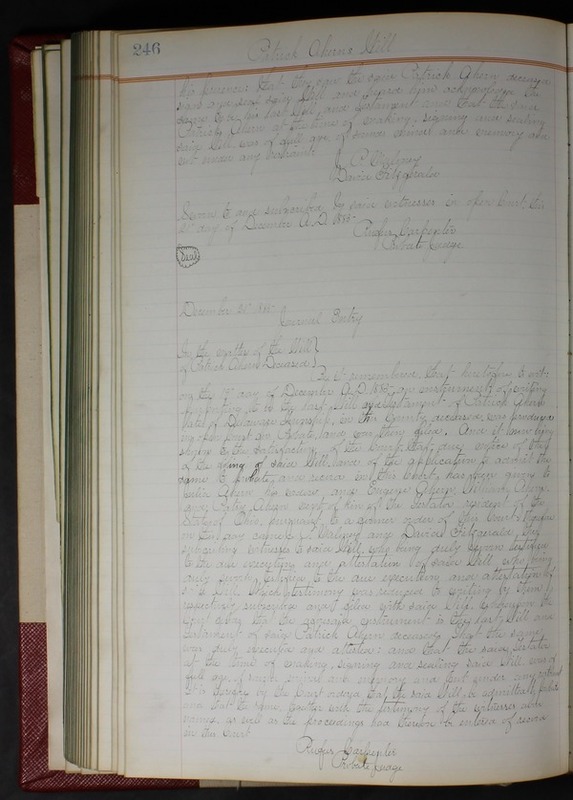 246
Patrick Aherns Will
his presence that they saw the said Patrick Ahern deceased
sign and seal said Will and heard him acknowledge the
same to be his last Will and Testament and that the said
Patrick Ahern at the time of making, signing and sealing
said Will was of full age of sound mind and memory and
not under any restraint
J. C.
David Fitzgerald
Sworn to and subscribed by said witnesses in open Court this
day of December A.D. 1885
Rufus Carpenter
Probate Judge
Seal
December 1885
Journal Entry
In the matter of the Will
of Patrick Ahern Deceased
Be it remembered, that heretofore to wit:
on the day of December A.D. 1885 an instrument of writing
purporting to be the last Will and Testament of Patrick Ahern
late of Township, in this County, deceased, was produced
in open Court for Probate, and was then filed. And it now being
shown to the satisfaction of the Court, that due notice of the
of the filing of said Will, and of the application to admit the
same to probate, and record in this Court, has been given to
Ahern his widow, and Eugene Ahern, Ahern
and Ahern next of kin of the Testator, resident of the
State of Ohio, pursuant to a former order of this Court. Thereupon
on this day came J. and David Fitzgerald the
subscribing witnesses to said Will, who being duly sworn testified
to the due execution and attestation of said Will, who being
duly sworn testified to the due execution and attestation of
said Will. Which testimony was reduced to writing by them
respectively subscribed and filed with said Will. Whereupon the
Court finds that the aforesaid instrument is the last Will and
Testament of said Patrick Ahern deceased, that the same
was duly executed and attested; and that the said Testator
at the time of making, signing and sealing said Will was of
full age, of sound mind and memory and not under any restraint
It is therefore by the Court ordered that the said Will be admitted to probate
and that the same, together with the testimony of the witnesses above
named, as well as the proceedings had thereon be entered of record
in this Court
Rufus Carpenter
Probate Judge